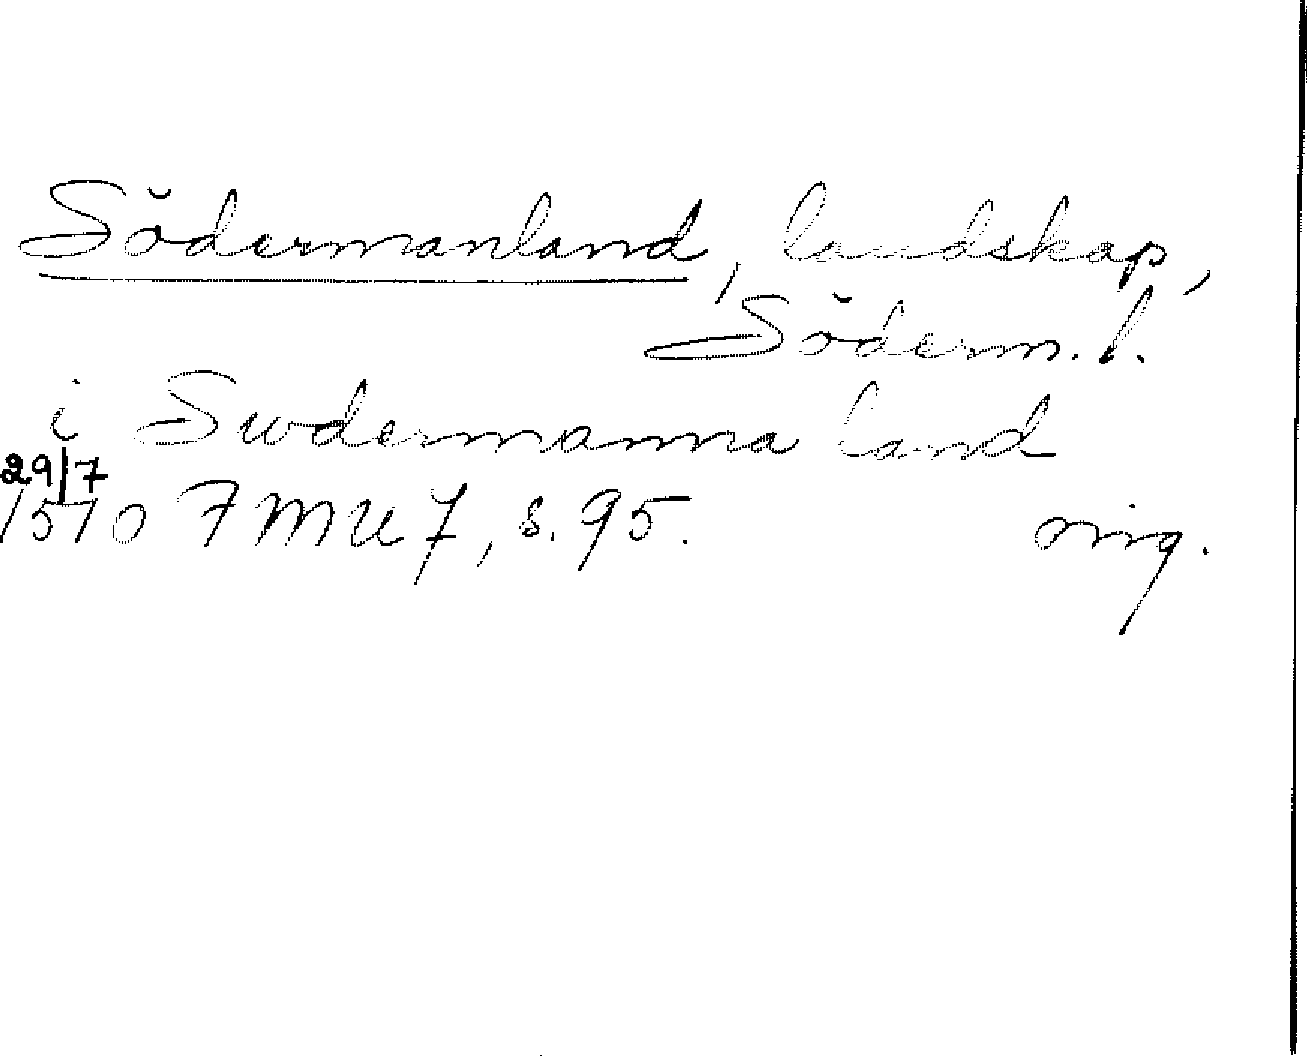 Södermanland, landskap,
Söderm. l.
i Swdermanna land
29/7
1510 FMU 7, s. 95. orig.